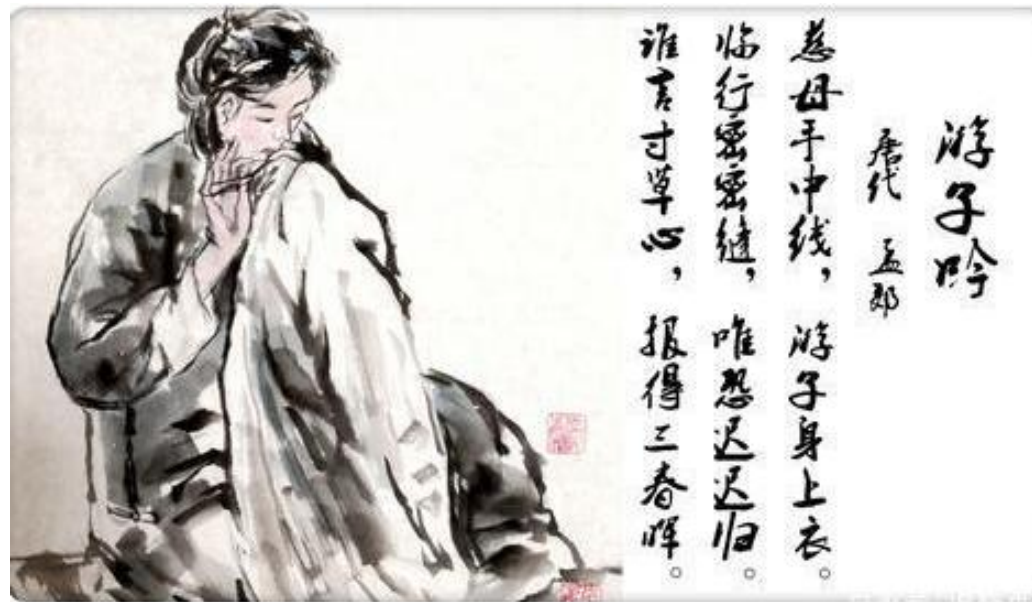 游子吟
唐代 孟郊
慈母手中线，游子身上衣。
临行密密缝，唯恐迟迟归。
谁言寸草心，报得三春晖。